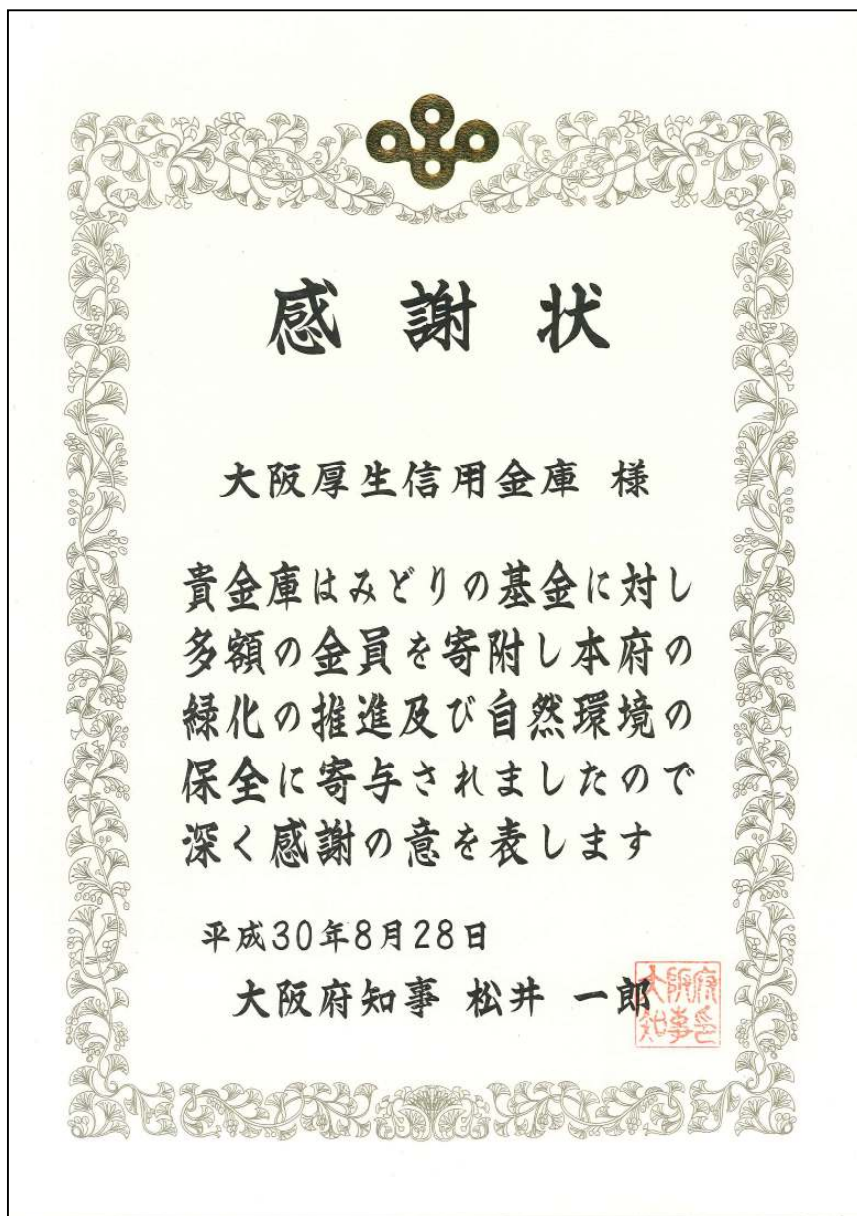 感謝状
大阪厚生信用金庫 様
貴金庫はみどりの基金に対し
多額の金員を寄附し本府の
緑化の推進及び自然環境の
保全に寄与されましたので
深く感謝の意を表します
平成30年8月28日
大阪府知事 松井 一郎
大阪府
知事之印